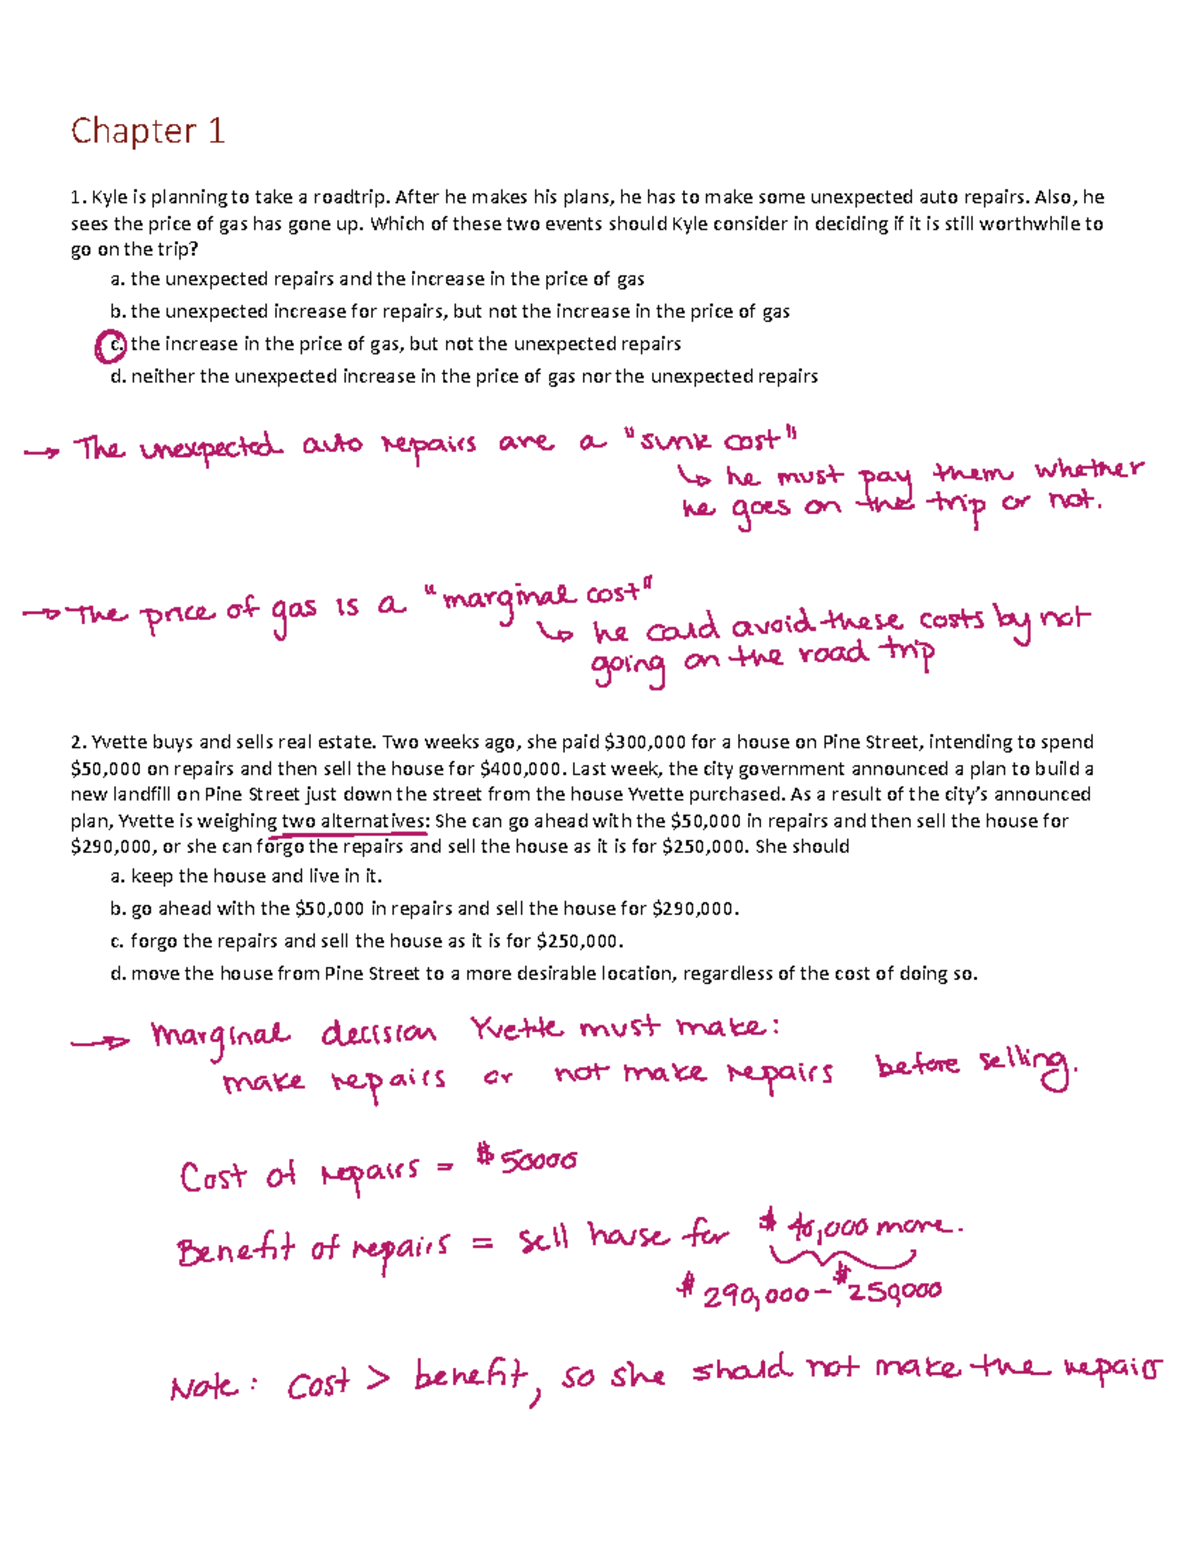 Chapter 1
1. Kyle is planning to take a roadtrip. After he makes his plans, he has to make some unexpected auto repairs. Also, he
sees the price of gas has gone up. Which of these two events should Kyle consider in deciding if it is still worthwhile to
go on the trip?
a. the unexpected repairs and the increase in the price of gas
b. the unexpected increase for repairs, but not the increase in the price of gas
c. the increase in the price of gas, but not the unexpected repairs
d. neither the unexpected increase in the price of gas nor the unexpected repairs
→ The unexpected auto repairs are a "sunk cost"
↳ he must pay them whether
he goes on the trip or not.
→ The price of gas is a "marginal cost"
↳ he could avoid these costs by not
going on the road trip
2. Yvette buys and sells real estate. Two weeks ago, she paid $300,000 for a house on Pine Street, intending to spend
$50,000 on repairs and then sell the house for $400,000. Last week, the city government announced a plan to build a
new landfill on Pine Street just down the street from the house Yvette purchased. As a result of the city's announced
plan, Yvette is weighing two alternatives: She can go ahead with the $50,000 in repairs and then sell the house for
$290,000, or she can forgo the repairs and sell the house as it is for $250,000. She should
a. keep the house and live in it.
b. go ahead with the $50,000 in repairs and sell the house for $290,000.
c. forgo the repairs and sell the house as it is for $250,000.
d. move the house from Pine Street to a more desirable location, regardless of the cost of doing so.
→ Marginal decision Yvette must make:
make repairs or not make repairs before selling.
Cost of repairs = $50000
Benefit of repairs = sell house for $40,000 more.
$290,000 - $250,000
Note: Cost > benefit, so she should not make the repairs